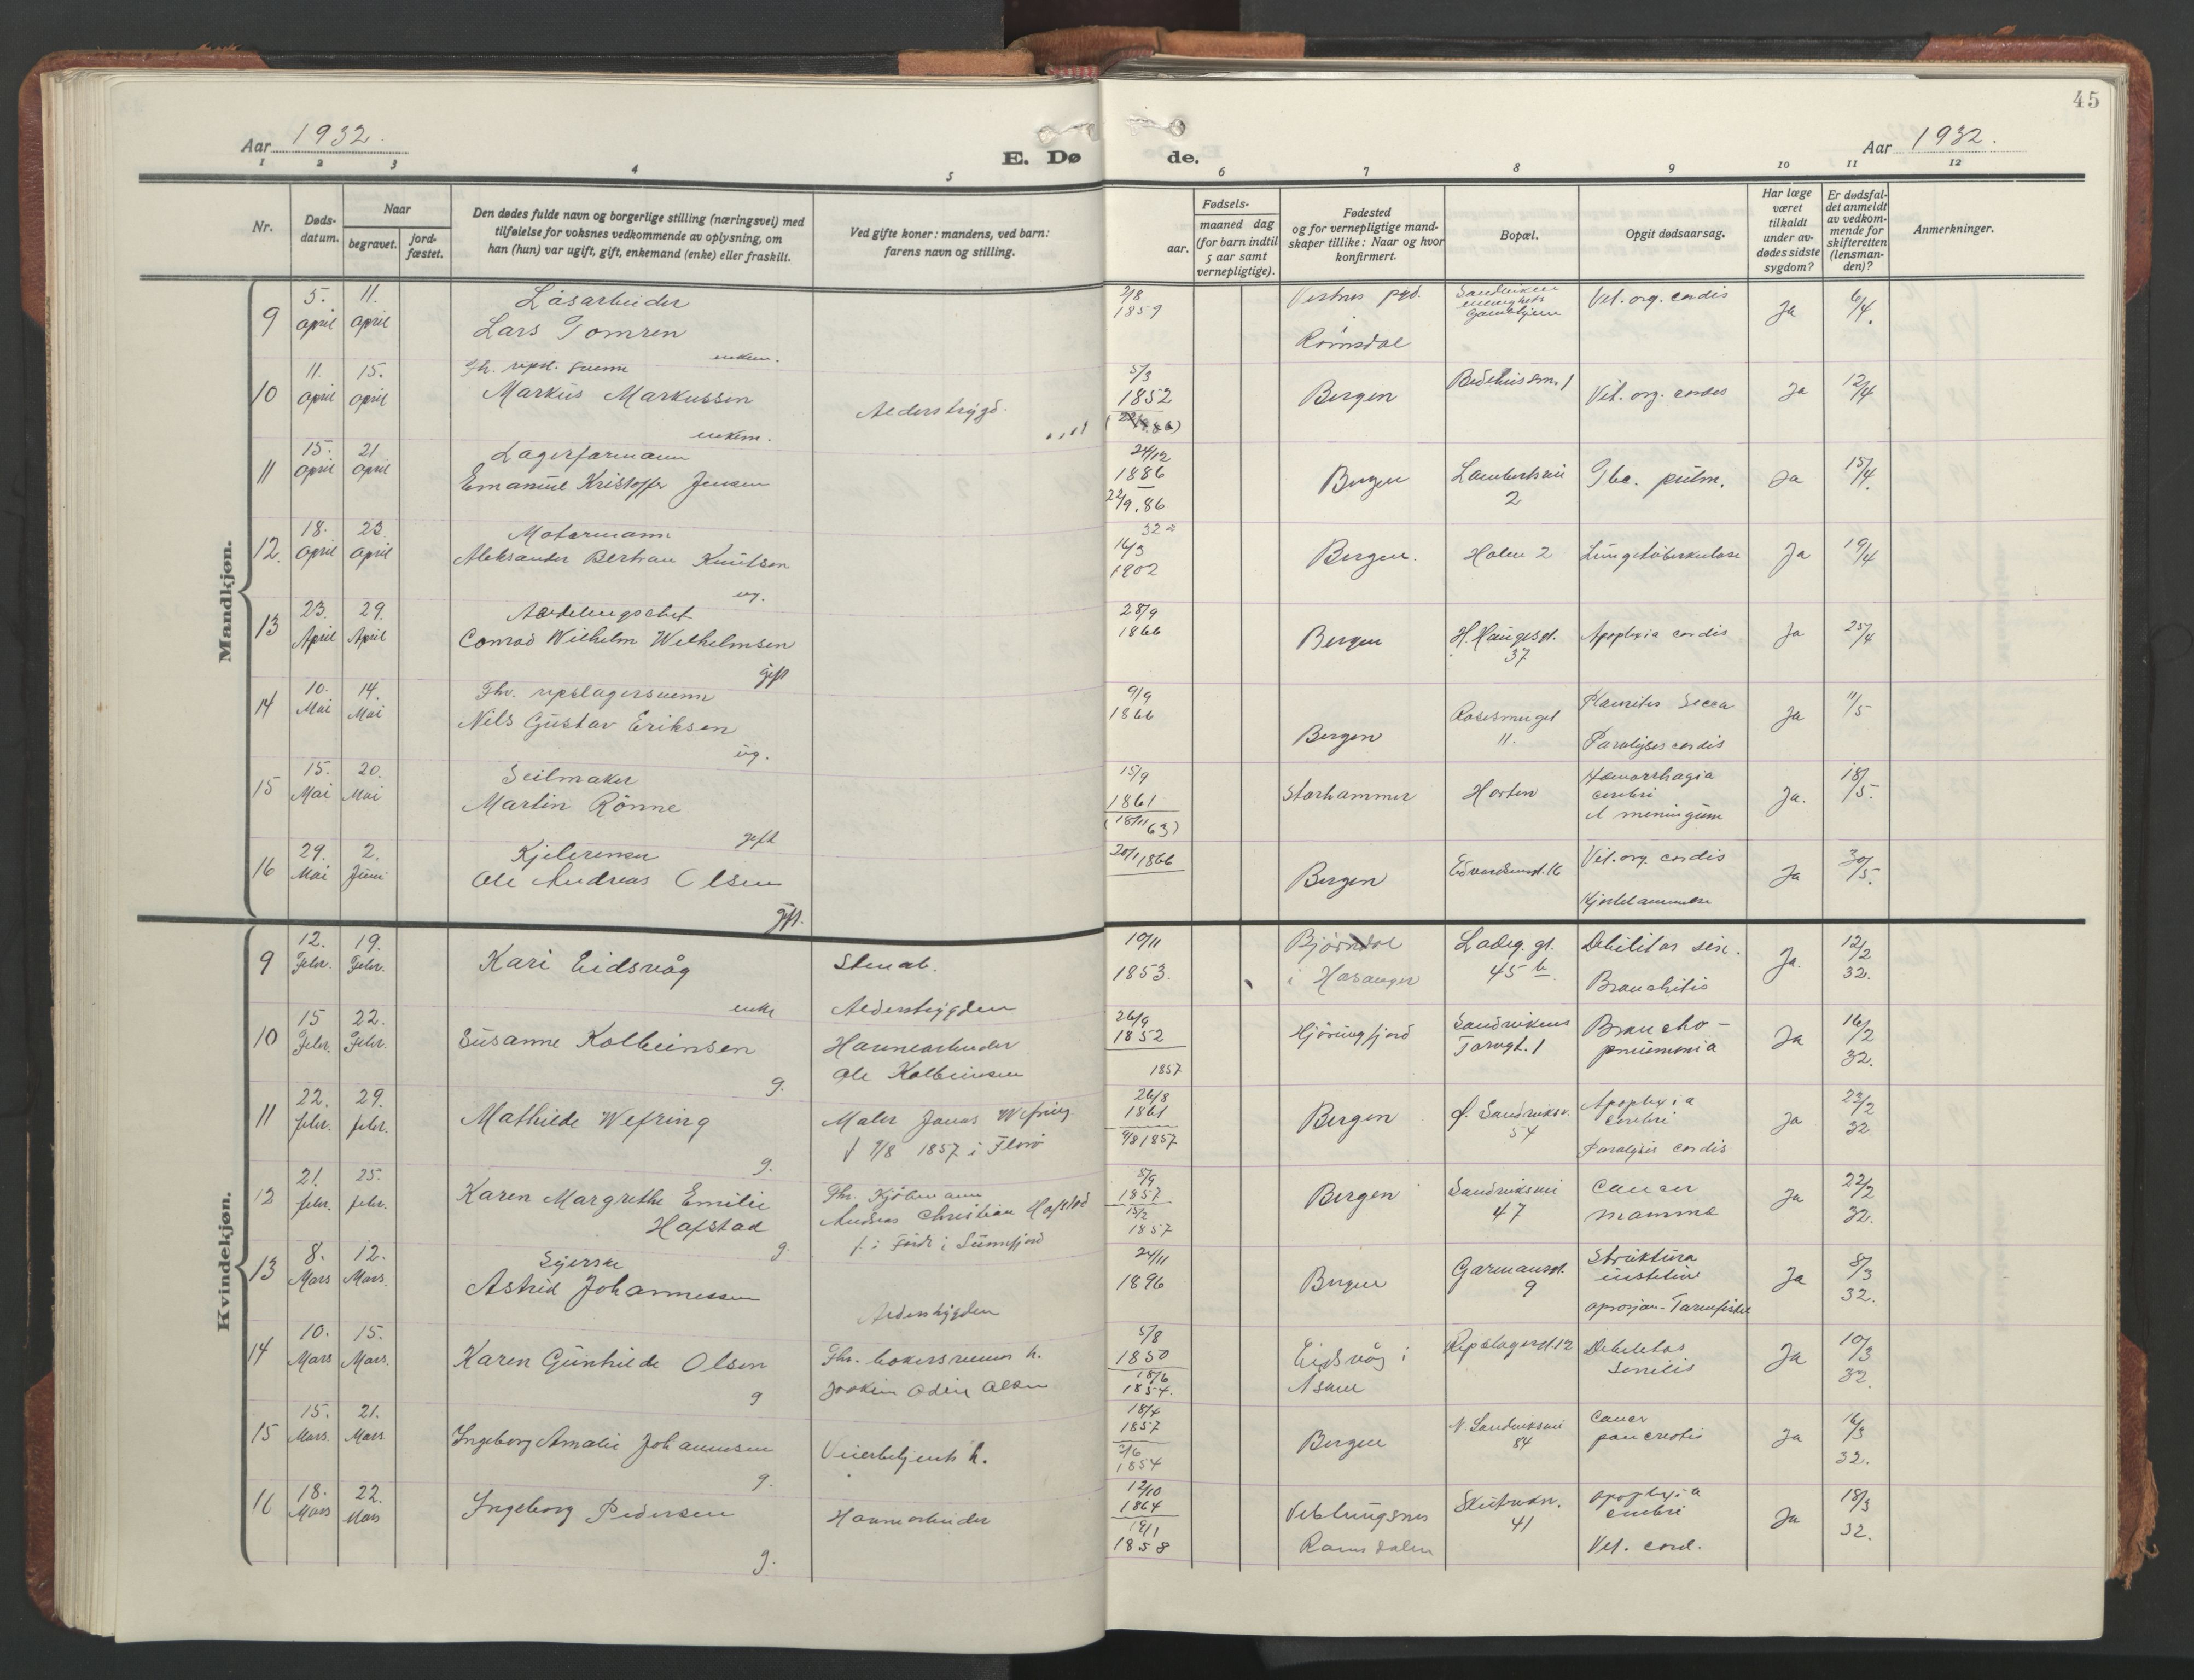 45
Aar 1932.
E. Døde.
Aar 1932.
1 2 3 4 5 6 7 8 9 10 11 12
Nr.
Døds-datum.
Naar
begravet.
jord-fæstet.
Den dødes fulde navn og borgerlige stilling (næringsvei) med
tilføielse for voksnes vedkommende av oplysning, om
han (hun) var ugift, gift, enkemand (enke) eller fraskilt.
Ved gifte koner: mandens, ved barn:
farens navn og stilling.
Fødsels-
aar.
maaned dag
(for barn indtil
5 aar samt
vernepligtige).
Fødested
og for vernepligtige mand-
skaper tillike: Naar og hvor
konfirmert.
Bopæl.
Opgit dødsaarsag.
Har læge
været
tilkaldt
under av-
dødes sidste
sygdom?
Er dødsfal-
det anmeldt
av vedkom-
mende for
skifteretten
(lensman-
den)?
Anmerkninger.
Mandkjøn.
9 5. April 11. April Låsarbeider
Lars Tomren
enkem.
2/8 1859
Romsdal
Vit. org. cordis Ja 6/4.
10 11. April 15. April
Markus Markussen
enkem.
Alderstrygd.
5/3 1852
Bergen
Vit. org. cordis Ja 12/4
11 15. April 21 April Lagerformann
Emanuel Kristoffer Jensen
24/12 1886
22/9.86
Bergen
2
Tbc. pulm. Ja 15/4.
12. 18. April 23. April Motormann
Aleksander Bertran Knutsen
ug.
16/3 1902
Bergen. Holen 2 Lungetuberkulose Ja 19/4
13 23. April 29. April Avdelingschef
Conrad Wilhelm Wilhelmsen
gift
28/9 1866
Bergen H. Haugesgt. 37 Apoplexia cordis Ja 25/4
14 10. Mai 14. Mai Fhv. repslagersvenn
Nils Gustav Eriksen
ug.
9/9 1866
Bergen Rosesmuget 11.
Pleuritis Secca
Paralysis cordis
Ja 11/5
15 15. Mai 20. Mai Seilmaker
Martin Rönne
gift
15/9 1861
(18/11 63)
Storhammer Horten
Hæmorrhagia
cerebri
et meningum
Ja. 18/5.
16 29. Mai 2. Juni
Ole Andreas Olsen
gift.
20/1 1866
Bergen Edvardsensgt. 16
Vit. org. cordis
Ja 30/5.
Kvindekjøn.
9 12. Febr. 19. Febr. Kari Eidsvåg
enke
Alderstrygden
19/11 1853.
i Hosanger
Ladeg. gt. 45 b.
Debilitas sen.
Bronchitis
Ja. 12/2 32.
10 15 Febr. 22. Febr. Susanne Kolbeinsen
g.
Havnearbeider
Ole Kolbeinsen
1857
26/9 1852
Hjörungfjord
Sandvikens
Torvgt. 1
Broncho-
pneumonia
Ja 16/2 32.
11 22. febr. 29. febr. Mathilde Wefring
g.
Maler Jonas Wefring
f 9/8 1857 i Florö
26/8 1861
9/8 1857
Bergen
54
Apoplexia
cerebri
Paralysis cordis
Ja 23/2 32
12 21. febr. 25. febr. Karen Margrethe Emilie
Hofstad
g.
Fhv. Kjöbmann
Andreas Christian Hofstad
f. i Förde i Sunnfjord
5/9 1857
15/2 1857
Bergen Sandviksvei 47
Cancer
mamma
Ja 22/2 32.
13 8. Mars 12. Mars. Syerske
Astrid Johannessen
24/11 1896
Bergen Garmansgt. 9
Ja 8/3 32.
14 10. Mars 15. Mars. Karen Gunhilde Olsen
g
Alderstrygden
Joakim Odin Olsen
5/8 1850
18/6 1854.
Eidsvåg i
Åsane
Repslagergt. 12
Debilitas
senilis
Ja 10/3 32.
15 15. Mars. 21. Mars Ingeborg Amalie Johannesen
g.
18/4 1857
2/6 1854
Bergen N. Sandviksvei 84
Cancer
pancreatis
Ja 16/3 32.
16 18. Mars 22. Mars Ingeborg Pedersen
g.
Havnearbeider
12/10 1864
19/1 1858
Veblungsnes
Romsdalen
Skutevikn. 41
Apoplexia
cerebri
Vit. cord.
Ja 18/3 32.